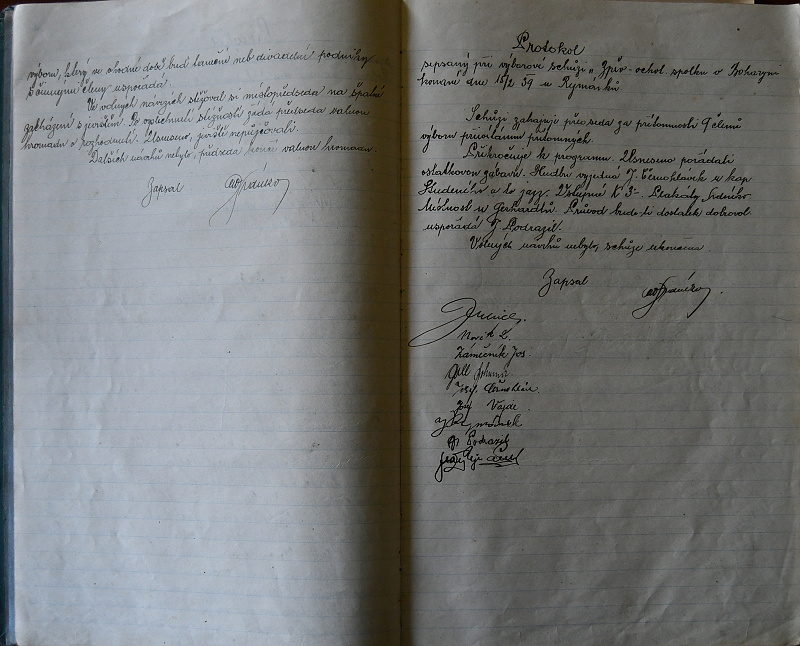 výboru, který ve vhodné době buď taneční neb divadelní podniky
s činnými členy uspořádá.
Ve volných návrzích stěžoval si místopředseda na špatné
zacházení s jevištěm. Po vyslechnutí stížnosti žádá předseda valnou
hromadu o rozhodnutí. Usneseno, jeviště nepůjčovati.
Dalších návrhů nebylo, předseda končí valnou hromadu.
Zapsal
Protokol
sepsaný při výborové schůzi „Zpěv. ochot. spolku v Boharyni
konané dne 15/2 39 u Rymášů
Schůzi zahajuje předseda za přítomnosti 9 členů
výboru přivítáním přítomných.
Přikročuje k programu. Usneseno pořádati
ostatkovou zábavu. Hudbu vyjedná J. Černohlávek u kap
Studeného a to jazz. Vstupné K 3-. Plakáty Srdínko
Místnost u Gerhardtů. Průvod bude-li dostatek dobrovol
uspořádá J. Podrazil.
Volných návrhů nebylo, schůze ukončena.
Zapsal
Novák L.
Zámečník Jos.
Josef Vajde
Podrazil